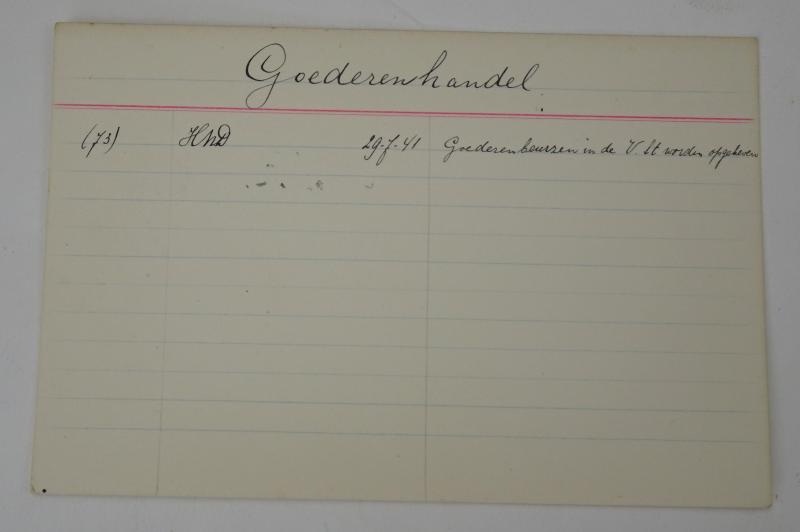 Goederenhandel.
(73) HND 29-7-41 Goederenbeurzen in de V. St worden opgeheven